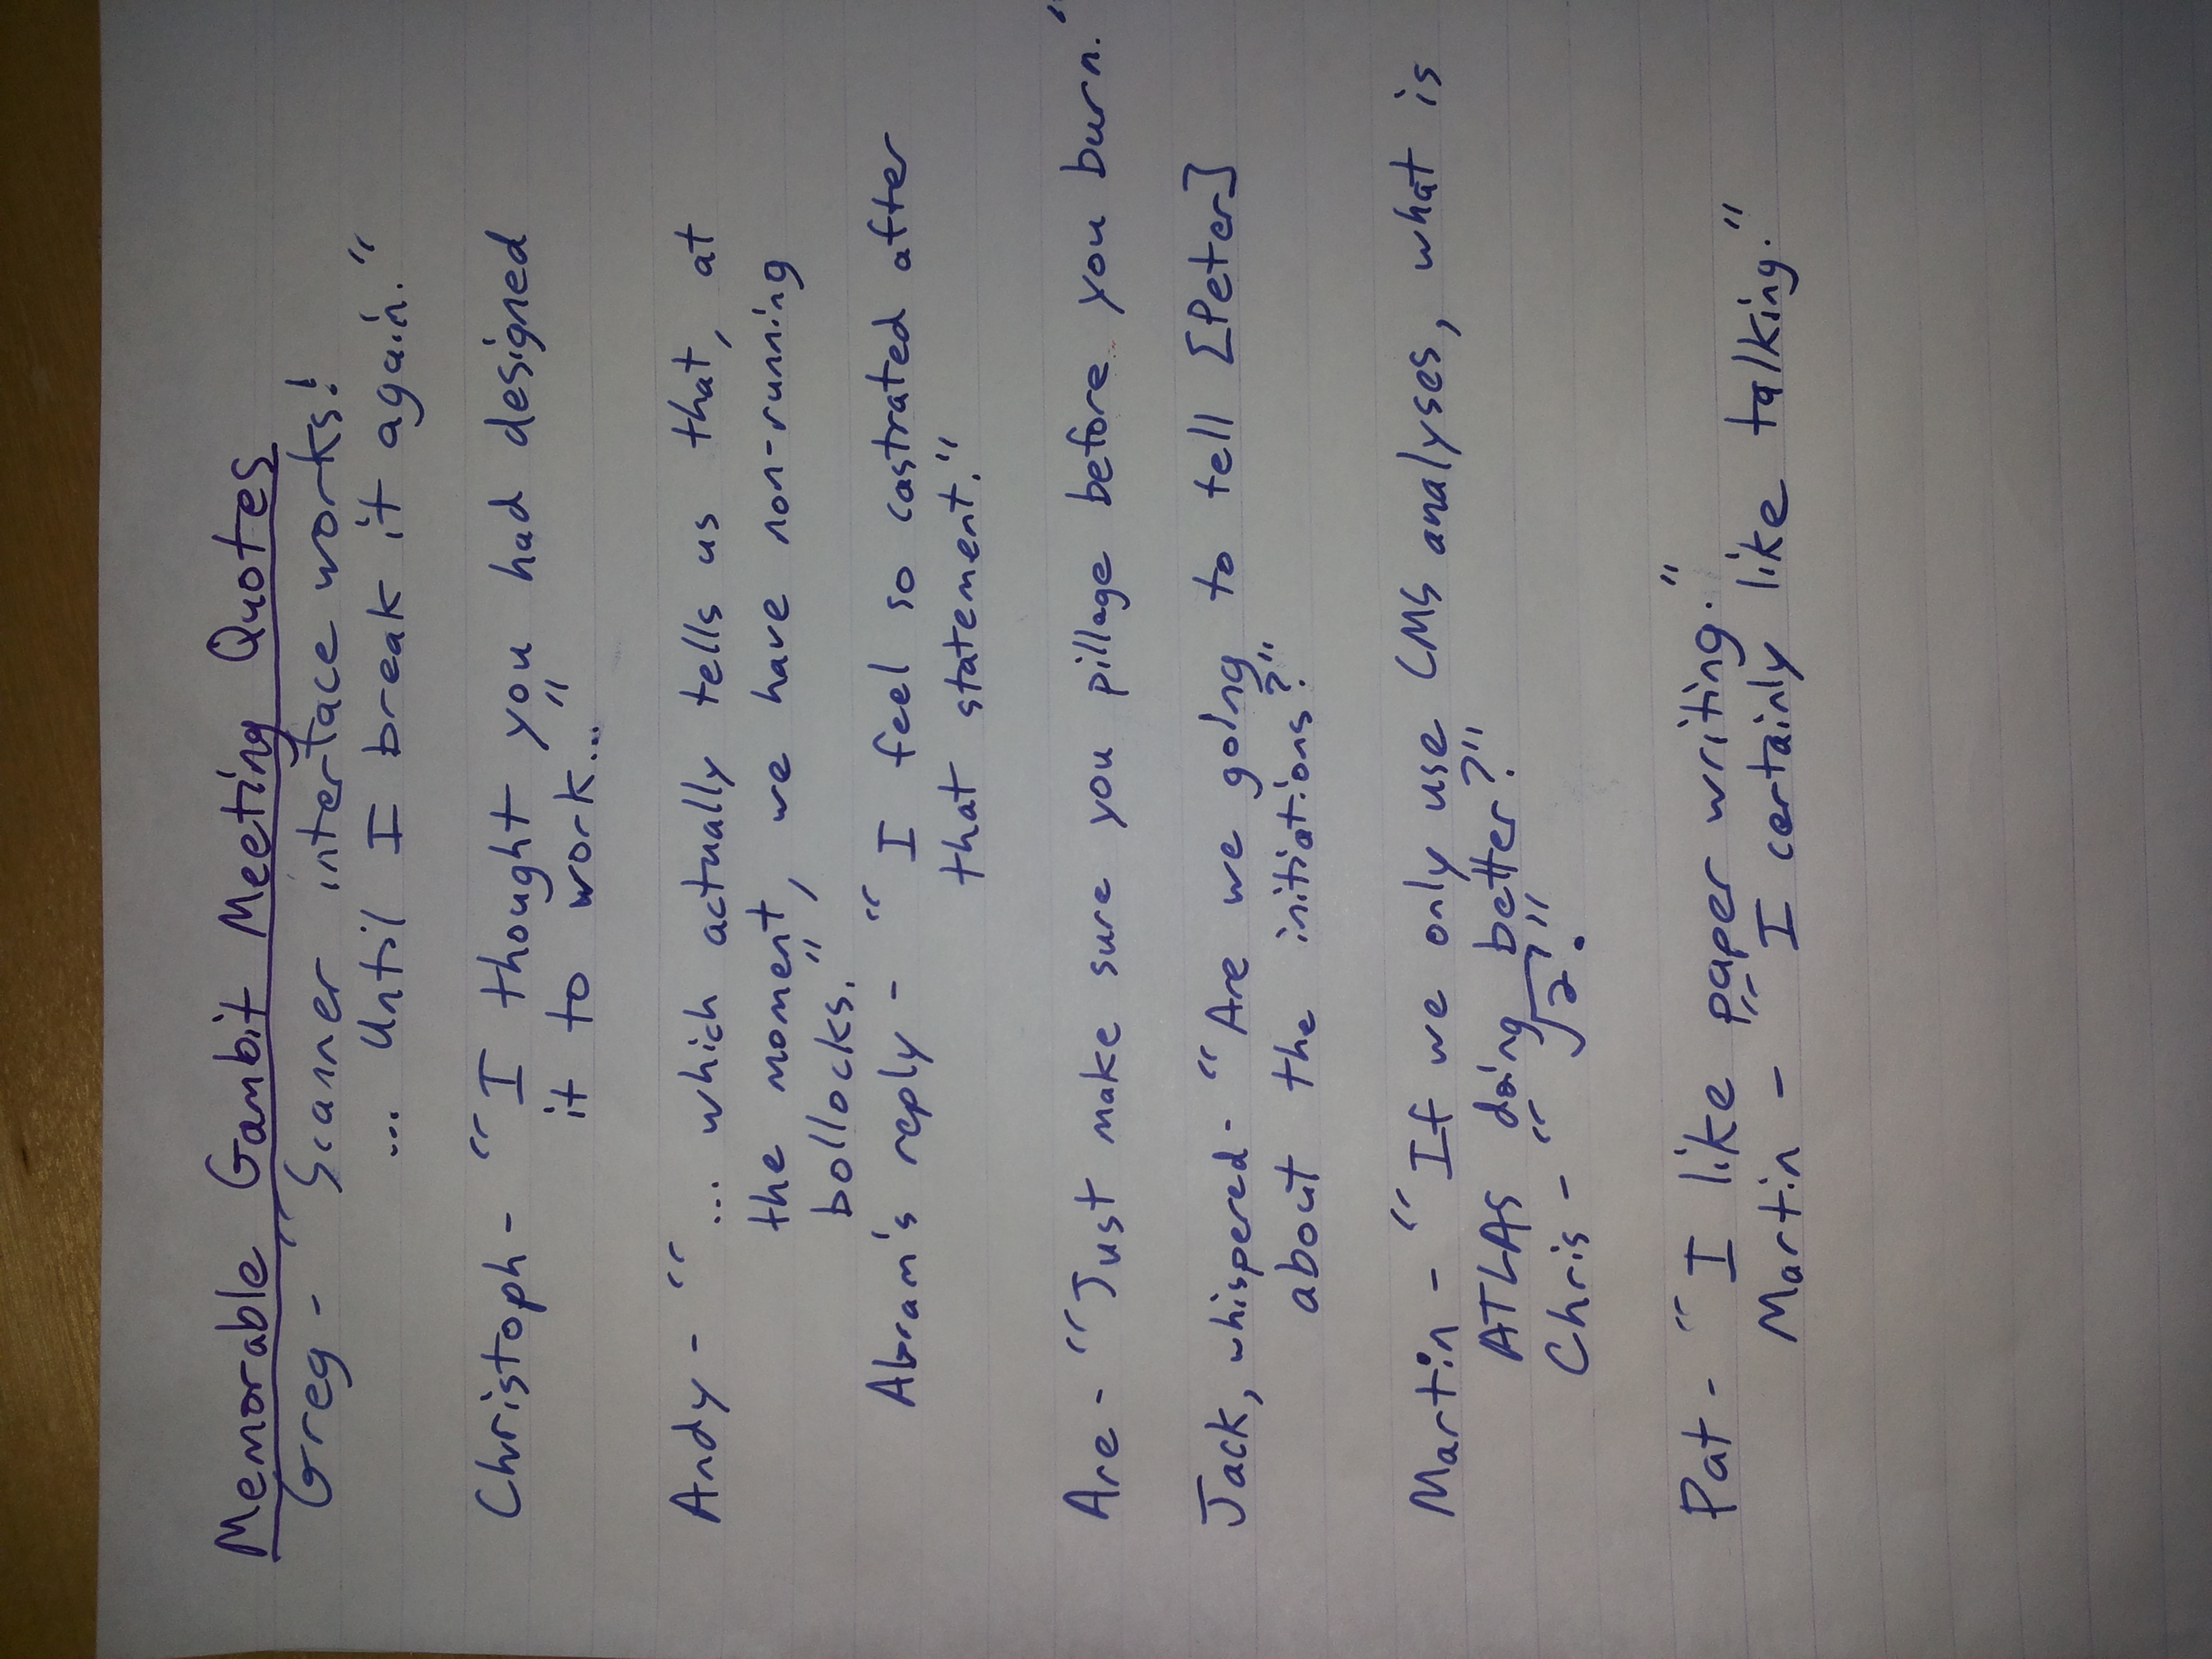 Memorable Gambit Meeting Quotes
Greg - "Scanner interface works!
... Until I break it again."
Christoph - "I thought you had designed
it to work..."
Andy - "... which actually tells us that, at
the moment, we have non-running
bollocks."
Abram's reply - "I feel so castrated after
that statement."
Are - "Just make sure you pillage before you burn."
Jack, whispered - "Are we going to tell [Peter]
about the initiations?"
Martin - "If we only use CMS analyses, what is
ATLAS doing better?"
Chris - "√2."
Pat - "I like paper writing."
Martin - "I certainly like talking."